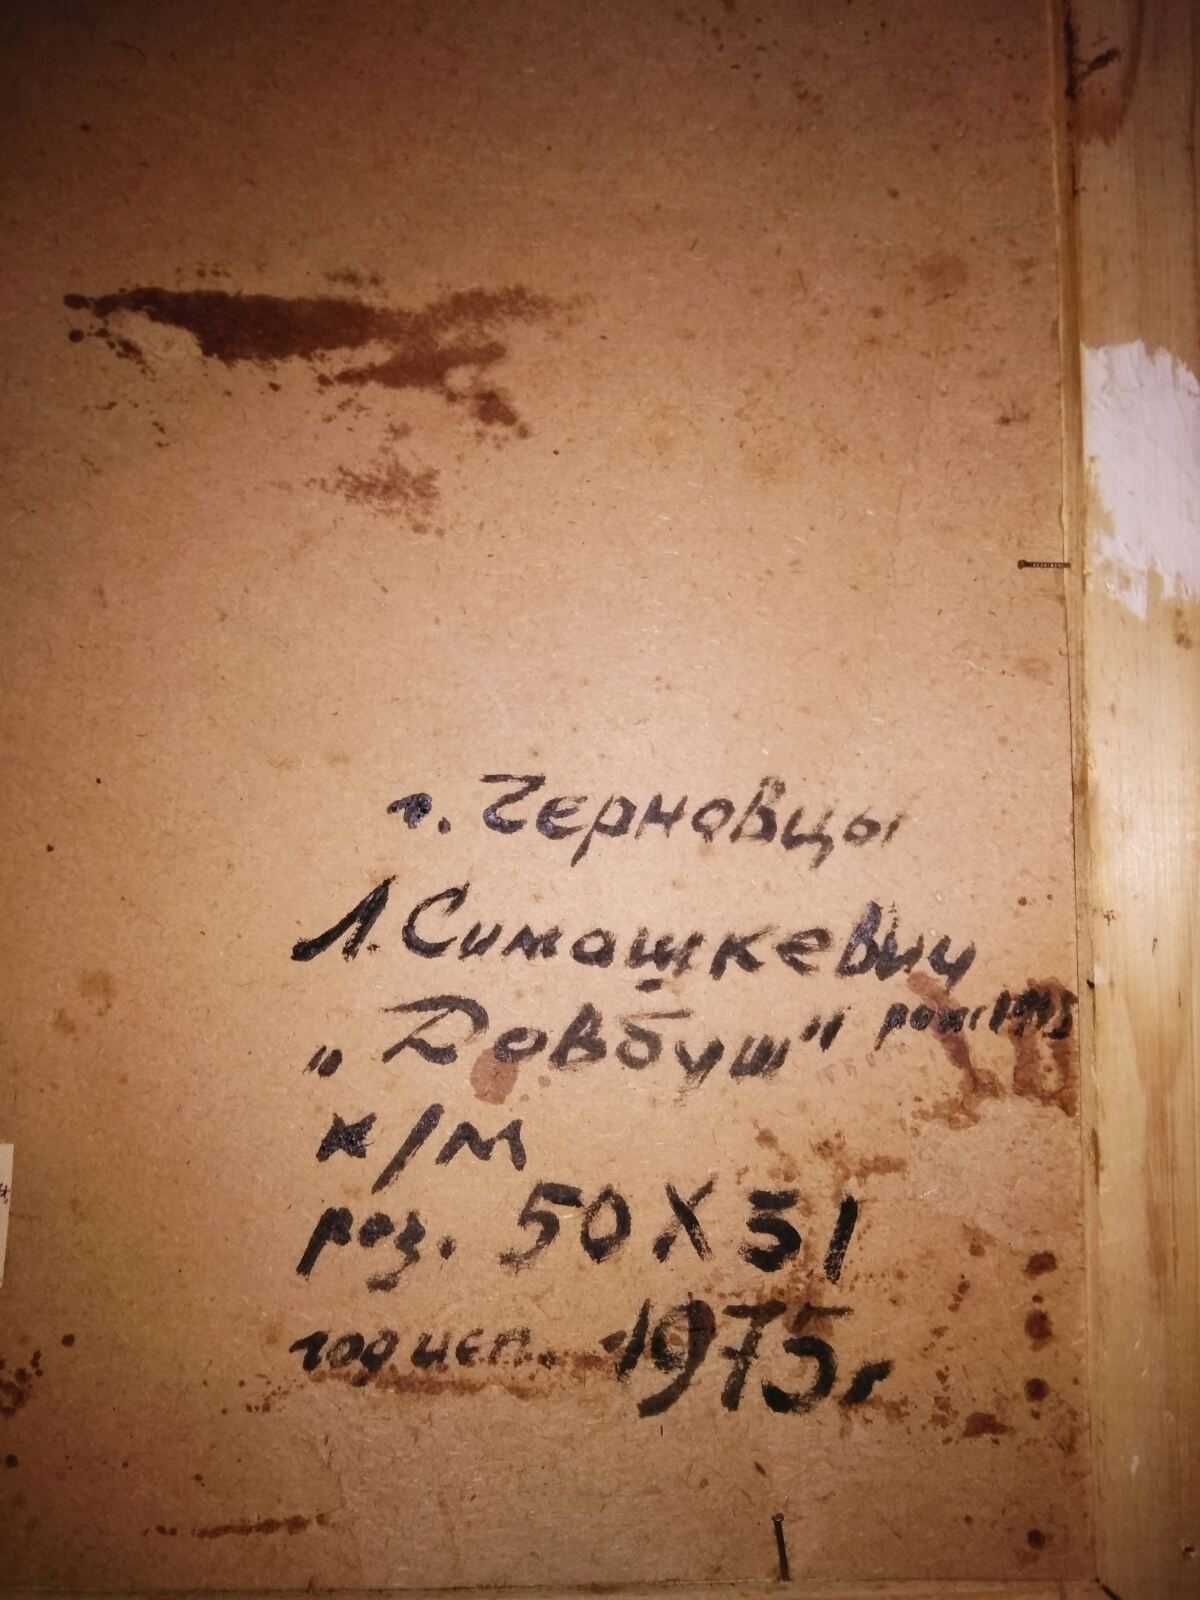 г. Черновцы
Л. Симашкевич
„Довбуш"
к/м
роз. 50 X 51
год исп. 1975 г